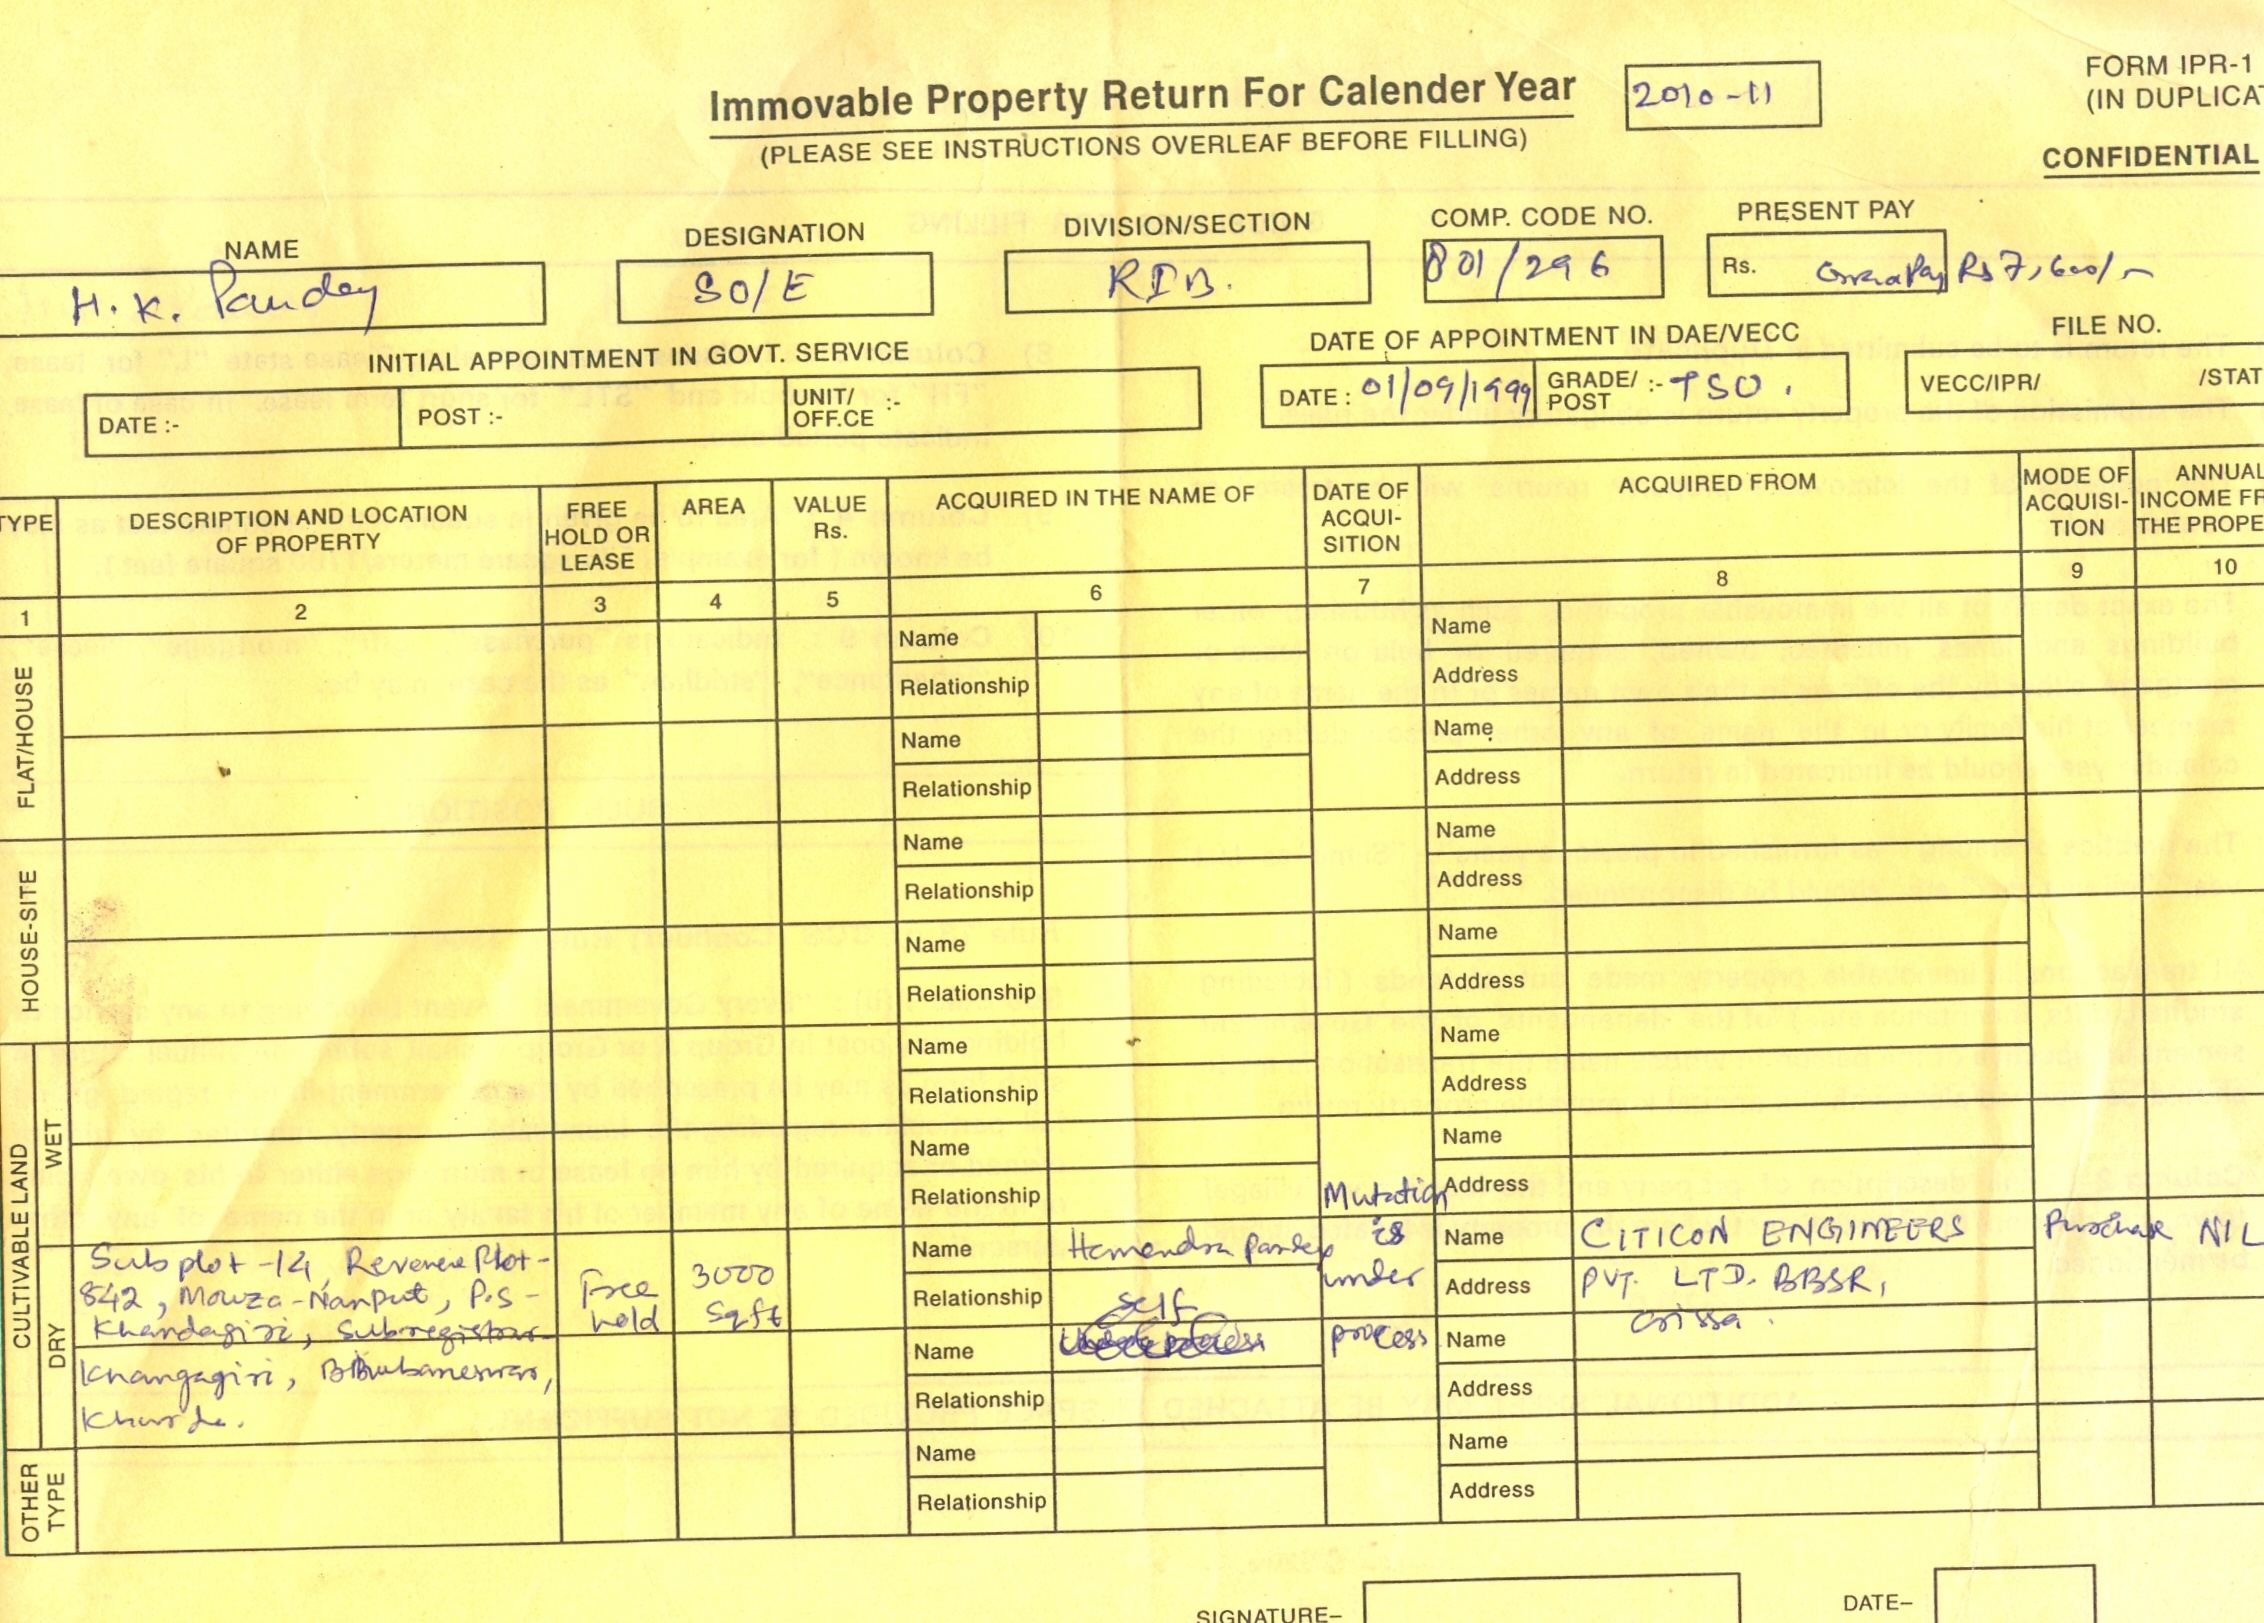 FORM IPR-1
Immovable Property Return For Calender Year 2010-11
(IN DUPLICAT
(PLEASE SEE INSTRUCTIONS OVERLEAF BEFORE FILLING)
CONFIDENTIAL
NAME DESIGNATION DIVISION/SECTION COMP. CODE NO. PRESENT PAY
H. K. Pandey SO/E RIB. 801/296 Rs. Pay Rs 7,600/-
INITIAL APPOINTMENT IN GOVT. SERVICE DATE OF APPOINTMENT IN DAE/VECC FILE NO.
DATE :- POST :- UNIT/ OFF.CE :- DATE : 01/09/1999 GRADE/ POST :- TSO. VECC/IPR/ /STAT
TYPE DESCRIPTION AND LOCATION OF PROPERTY FREE HOLD OR LEASE AREA VALUE Rs. ACQUIRED IN THE NAME OF DATE OF ACQUI- SITION ACQUIRED FROM MODE OF ACQUISI- TION ANNUAL INCOME FR THE PROPE
1 2 3 4 5 6 7 8 9 10
FLAT/HOUSE
Name Name
Relationship Address
Name Name
Relationship Address
HOUSE-SITE
Name Name
Relationship Address
Name Name
Relationship Address
CULTIVABLE LAND
WET
Name Name
Relationship Address
Name Name
Relationship Address
DRY
Sub plot-14, Revenue Plot-
842, Mouza-Nanput, P.S-
Khandagiri, Subregistrar
Khangagiri, Bhubaneswar,
Khurda.
Free hold
3000 Sqft
Name Hemendra Pandey
Relationship Self
Mutation is under process
Name CITICON ENGINEERS
Address PVT. LTD. BBSR,
Orissa.
Purchase NIL
Name Name
Relationship Address
OTHER TYPE
Name Name
Relationship Address
SIGNATURE– DATE–